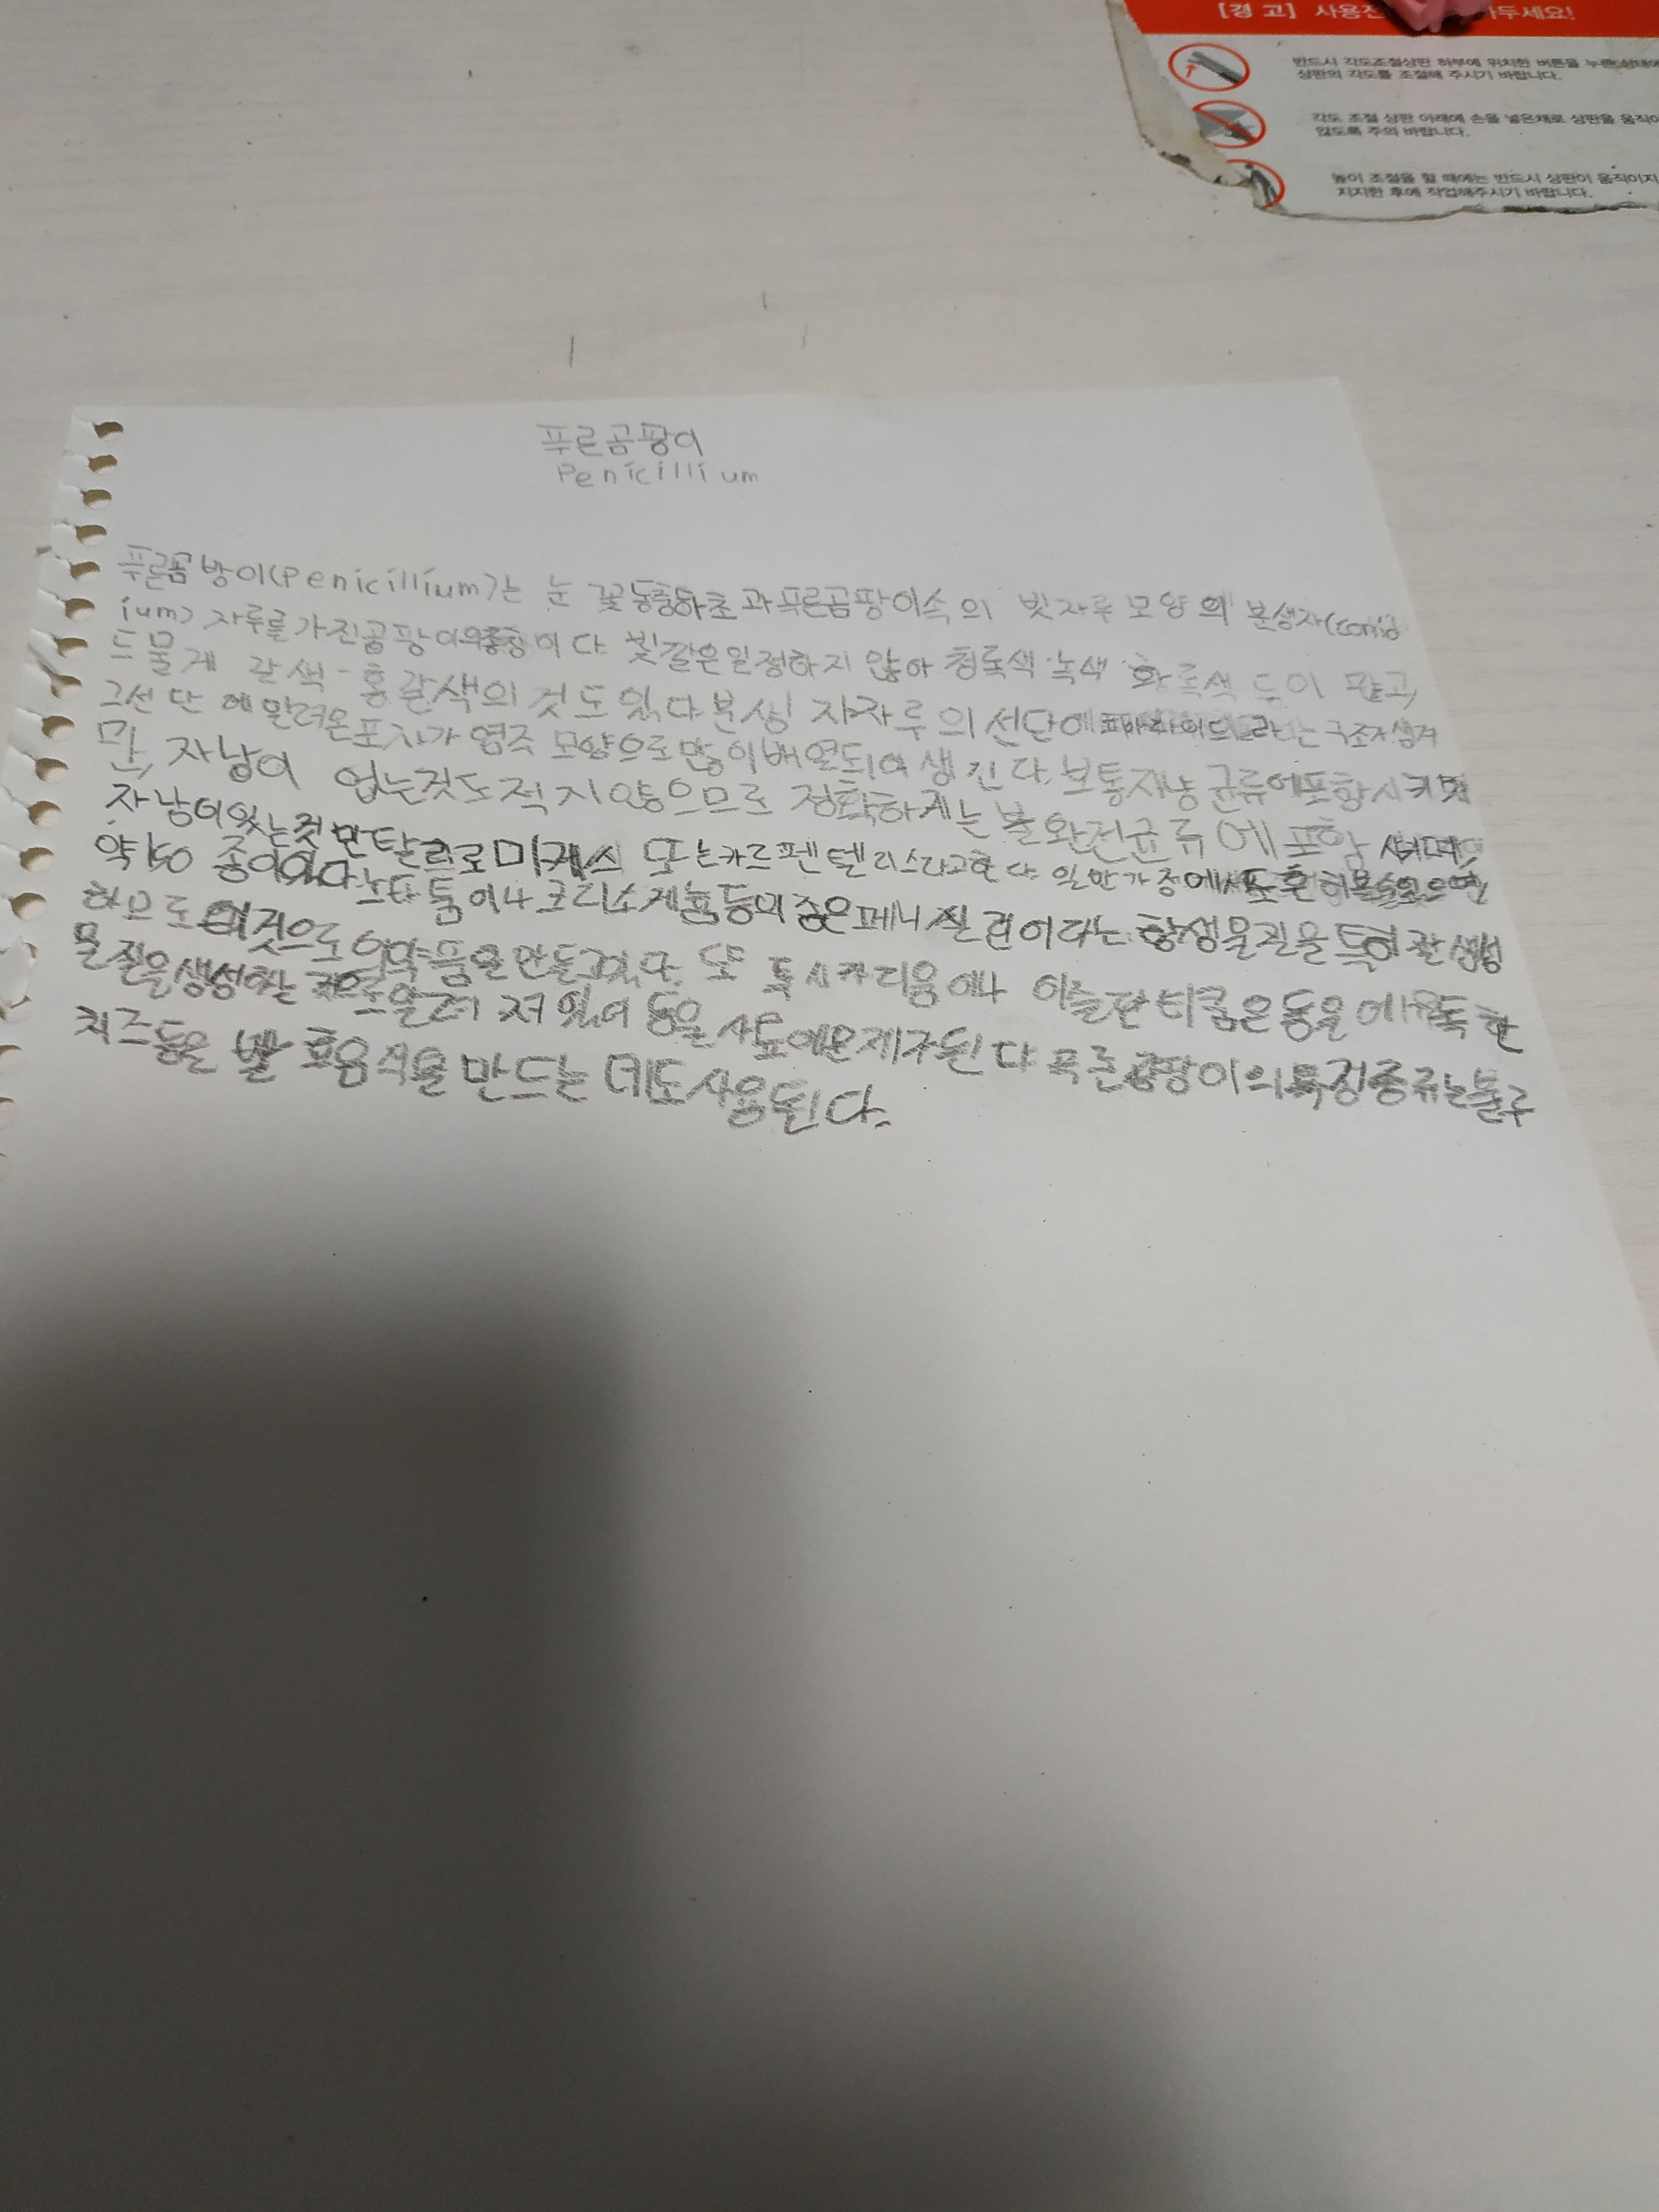 [경 고] 사용전 두세요!
반드시 각도조절상판 하부에 위치한 버튼을 누른 상태에
상판의 각도를 조절해 주시기 바랍니다.
각도 조절 상판 아래에 손을 넣은채로 상판을 움직이
않도록 주의 바랍니다.
높이 조절을 할 때에는 반드시 상판이 움직이지
지지한 후에 작업해주시기 바랍니다.
푸른곰팡이
Penicillium
푸른곰방이(Penicillium)는 눈꽃동충하초과 푸른곰팡이속의 빗자루 모양의 분생자(conid
ium) 자루를 가진곰팡이 이다 빛깔은일정하지 않아 청록색·녹색·황록색 등이 많고,
드물게 갈색-홍갈색의 것도 있다 분생 자자루의 선단에 라는 구조가생겨
그선단에 포자가 염주 모양으로많이배열되어 생긴다. 보통자낭 균류에포함시키지
만, 자낭이 없는것도적지않으므로 정확하게는 불완전균류에 포함
자낭이있는것만탈라로미케스 또는카르펜텔리스라고한다. 일반가정에서도흔히
약150 종이있다 노타툼이나 크리소게눔등의 종은페니실린이라는 항생물질을 특히잘생성
하으로 이것으로 의약품을만들고있다. 또 톡시카리움이나 이슬란티쿰은동물에유독한
물질을생성하는 것으로알려져있어 동물사료에문제가된다 푹른곰팡이의특정종류는블루
치즈등은 발효음식을만드는데도사용된다.